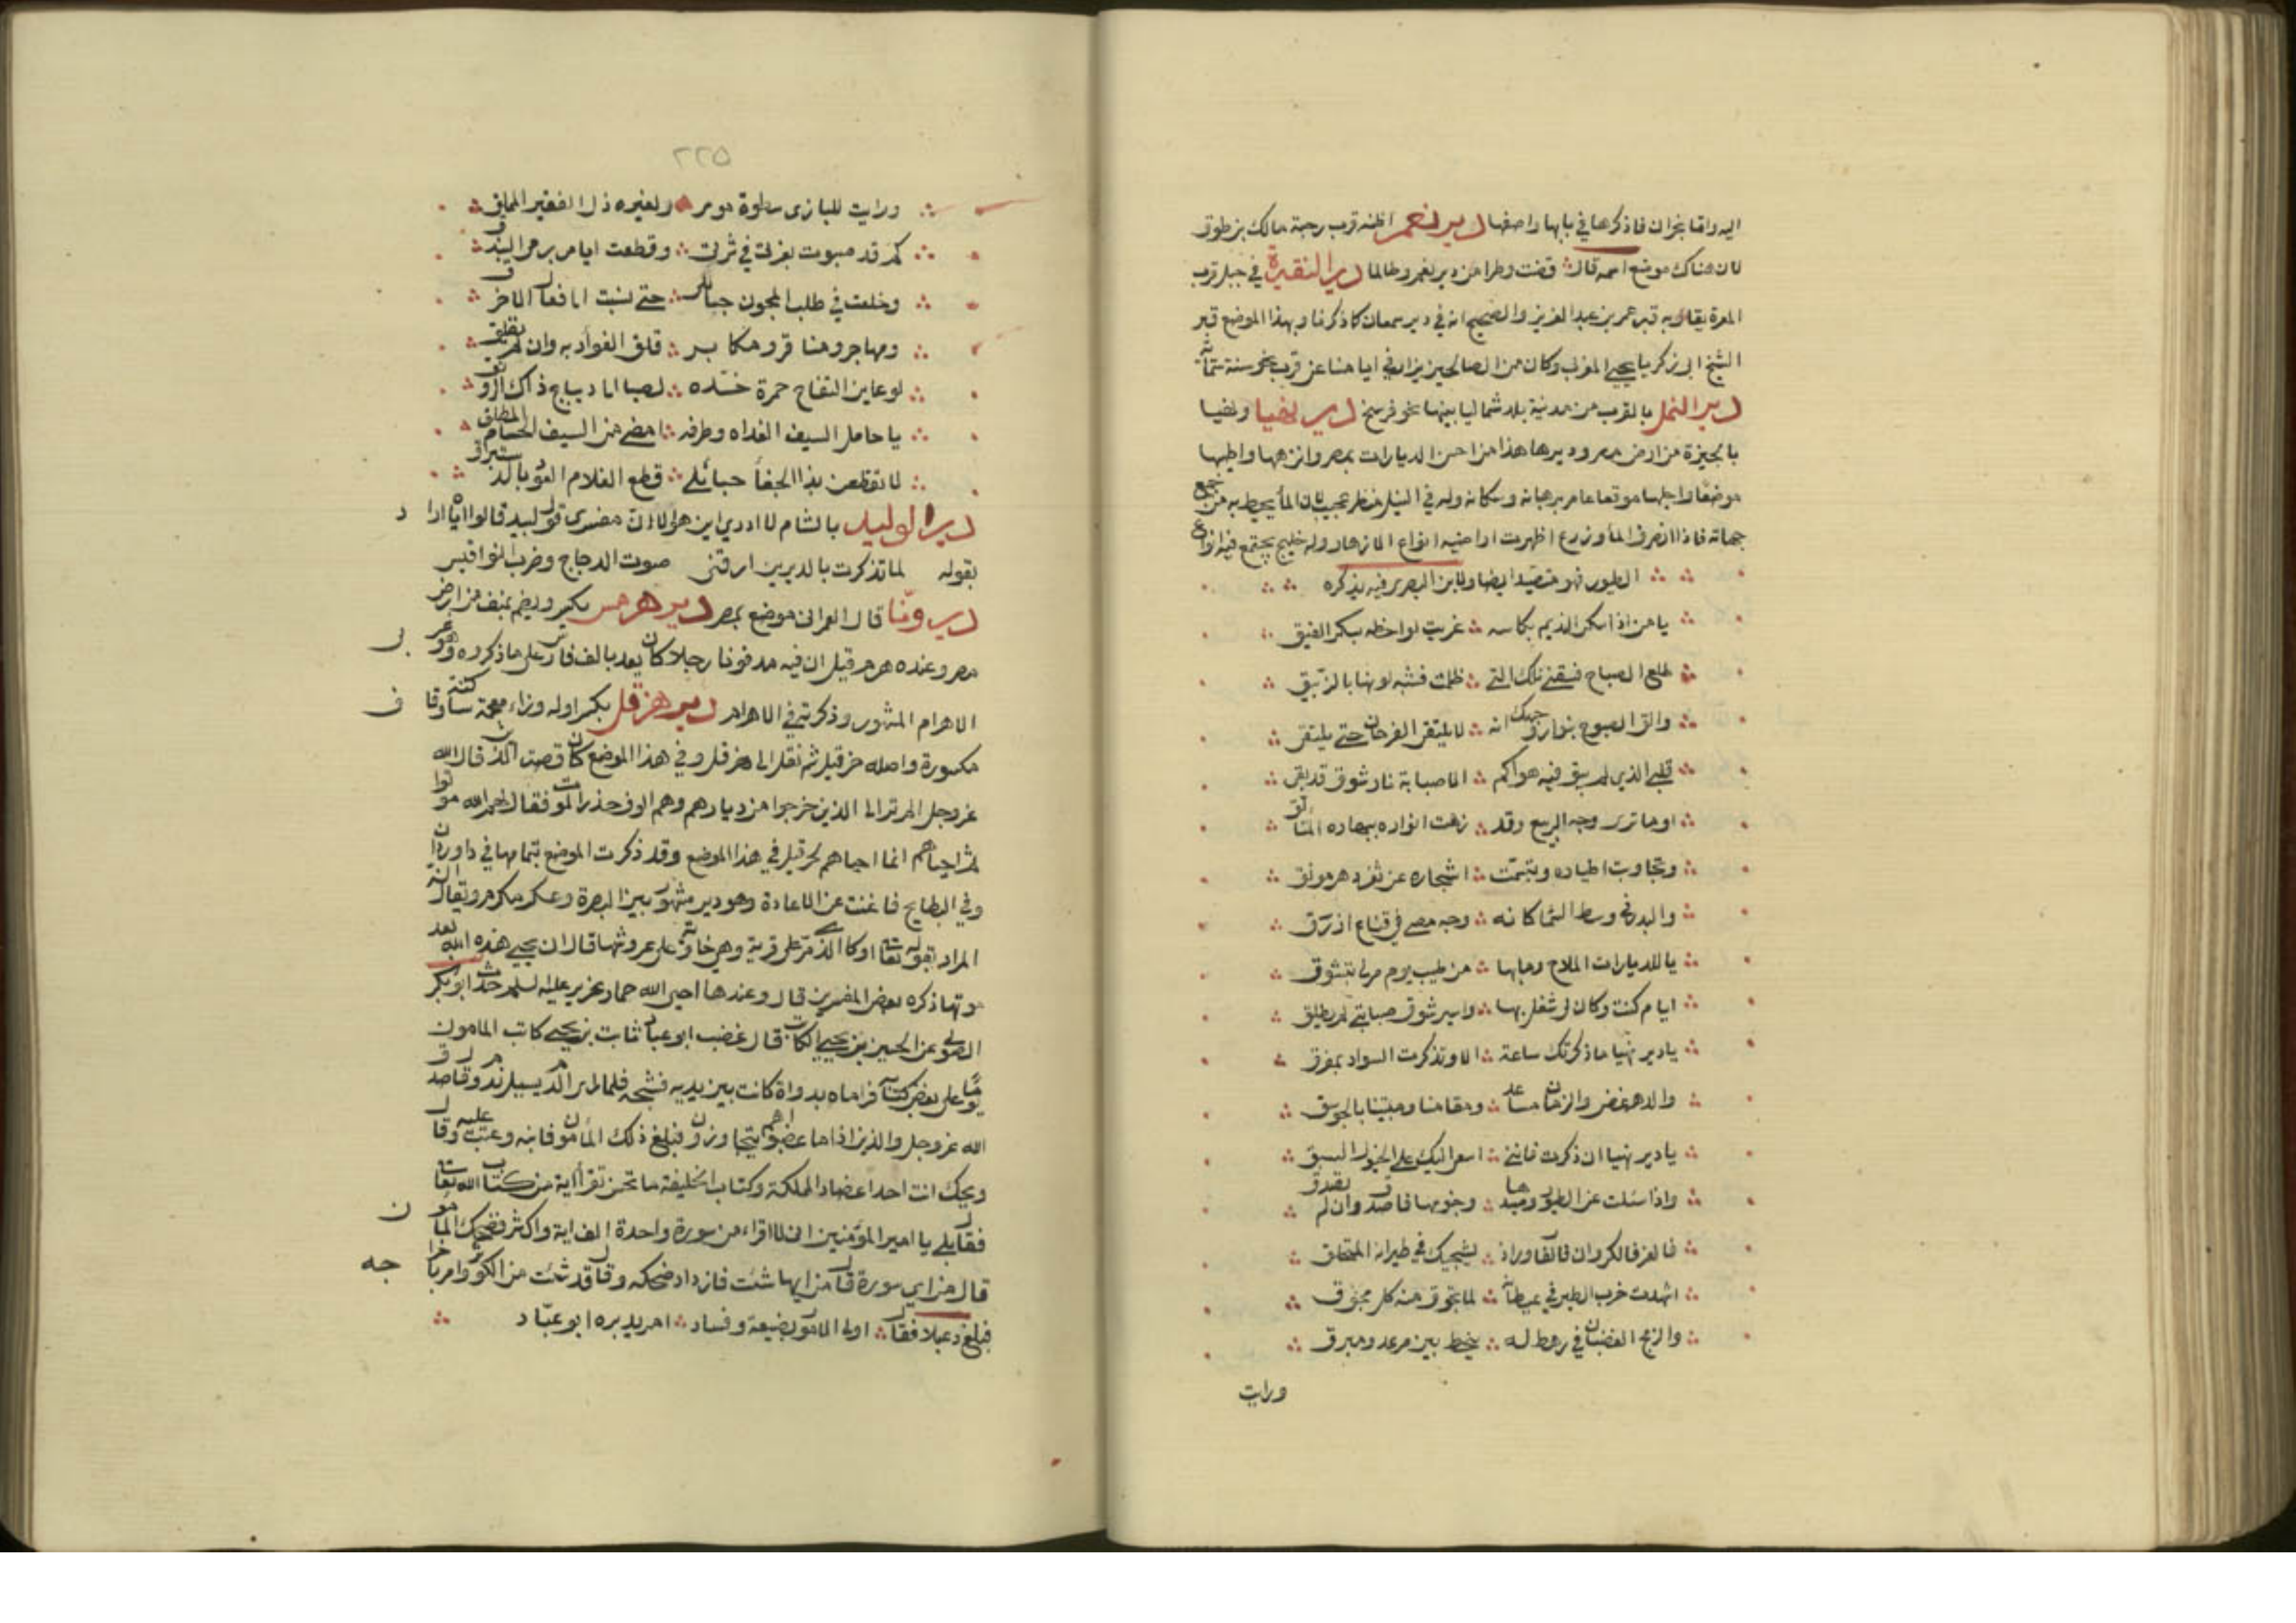 اليه واما نجران فاذكرها في بابها واصفها دير نعم اظنه قرب رحبة مالك بن طوق
لان هناك موضع اسمه قال قضت وطرا من دير نعم وطالما دير النقيرة في جبل قرب
المعرة يقال به قبر عمر بن عبد العزيز والصحيح انه في دير سمعان كما ذكرنا وبهذا الموضع قبر
الشيخ ابي زكريا يحيي المغربي وكان من الصالحين يزار في ايامنا عن قرب نحو سنة ستمائة
دير النمل بالقرب من مدينة بلد شماليا بينهما نحو فرسخ دير نهيا ونهيا
بالجيزة من ارض مصر وديرها هذا من احسن الديارات بمصر وانزهها واطيبها
موضعا واجلها موقعا عامر برهبانه وسكانه وله في النيل منظر عجيب لان الماء يحيط به من جميع
جهاته فاذا انصرف الماء وزرع اظهرت اراضيه انواع الازهار وله خليج يجتمع فيه انواع
الطيور فهو متصيد ايضا ولابن البصري فيه يذكره
يا من اذا سكر النديم بكاسه غريت لواحظه بسكر الفيق
طلع الصباح فسقني تلك التي ظلمت فشبه لونها بالزئبق
والق الصبوح بنور وجهك انه لا يلتقي الفرحان حتى يلتقي
قلبي الذي لم يبق فيه هواكم الا صبابة نار شوق قد بقي
اوما ترى وجه الربيع وقد زهت انواره بنهاره المتالق
وتجاوبت اطياره وتبسمت اشجاره عن ثغر دهر مونق
والبدر في وسط السما كانه وجه مضي في قناع ازرق
يا للديارات الملاح وما بها من طيب يوم مر لي بتشوق
ايام كنت وكان لي شغل بها واسير شوق صبابتي لم يطلق
يا دير نهيا ما ذكرتك ساعة الا وتذكرت السواد بمفرقي
والدهر غض والزمان مساعد ومقامنا ومبيتنا بالجوسق
يا دير نهيا ان ذكرت فانني اسعي اليك علي الخيول السبق
واذا سئلت عن الطيور وصيدها وجنوسها فاصدق وان لم تصدق
فالغر فالكروان فالفاور اذ يشجيك في طيرانه المتحلق
اشهدت حرب الطير في غيطانه لما تجوق منه كل مجوق
والزمج الغضبان في رهط له ينحط بين مرعد ومبرق
ورايت
٢٢٥
ورايت للبازي سطوة موسر ولغيره ذل الفقير المملق
كم قد صبوت بغرتي في شرتي وقطعت ايامي برمي البندق
وخلعت في طلب المجون حبائلي حتى نسبت الي فعال الاخرق
ومهاجر ومنافر ومكابر قلق الفواد به وان لم يقلق
لو عاين التفاح حمرة خده لصبا الي ديباج ذاك الرونق
يا حامل السيف الغداه وطرفه امضي من السيف الحسام المطلق
لا تقطعن يد الجفا حبائلي قطع الغلام العود بالاستبرق
دير الوليد بالشام لا ادري اين هو الا ان مفسري قول لبيد قالوا اياه اراد
بقوله لما تذكرت بالديرين ارقني صوت الدجاج وضرب النواقيس
دير ونا قال العمراني موضع بمصر دير هرمس بكسر ويضم بمنف من ارض
مصر وعنده هرم قيل ان فيه مدفونا رجلا كان يعد بالف فارس علي ما ذكروه وهو غربي
الاهرام المشهور وذكرته في الاهرام دير هزقل بكسر اوله وزاء معجمة ساكنة وقاف
مكسورة واصله حزقيل ثم نقل الي هزقل وفي هذا الموضع كان قصة الذين قال الله
عز وجل الم تر الي الذين خرجوا من ديارهم وهم الوف حذر الموت فقال لهم الله موتوا
ثم احياهم انما احياهم لحزقيل في هذا الموضع وقد ذكرت الموضع بتمامها في داوردان
وفي البطايح فاغنت عن الاعادة وهو دير مشهور بين البصرة وعسكر مكرم ويقال انه
المراد بقوله تعالى او كالذي مر علي قرية وهي خاوية علي عروشها قال ان يحيي هذه الله بعد
موتها ذكره بعض المفسرين قال وعندها احيي الله حمار عزير عليه السلم حدث ابو بكر
الصولي عن الحسين بن يحيي الكاتب قال غضب ابو عباد ثابت بن يحيي كاتب المامون
يوما علي بعض كتابه فرماه بدواة كانت بين يديه فشجه فلما راي الدم يسيل ندم وقال صدق
الله عز وجل والذين اذا ما غضبوا هم يتجاوزون فبلغ ذلك المأمون فانبه وعتب عليه وقال
ويحك انت احد اعضاد المملكة وكتاب الخليفة ما تحسن تقرأ اية من كتاب الله تعالى
فقال بلي يا امير المؤمنين اني لاقراء من سورة واحدة الف اية واكثر فضحك المامون
قال من اي سورة قال من ايها شئت فازداد ضحكه وقال قد شئت من الكوثر وامر باخراجه
فبلغ دعبلا فقال اولي الامور بضيعة وفساد امر يدبره ابو عباد